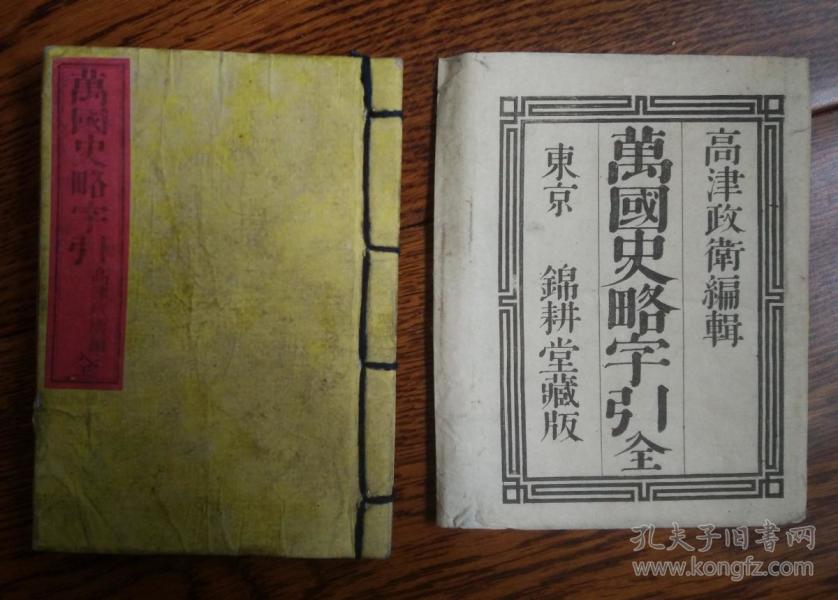 萬國史略字引
高津政衛編
全
高津政衛編輯
萬國史略字引 全
東京 錦耕堂藏版
孔夫子旧书网
www.kongfz.com